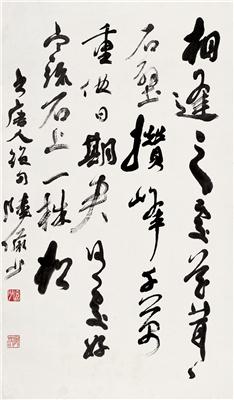 相逢之處草茸〻
石壁攢峰千萬
重他日期君何處好
寒流石上一株松
書唐人絕句陸儼少